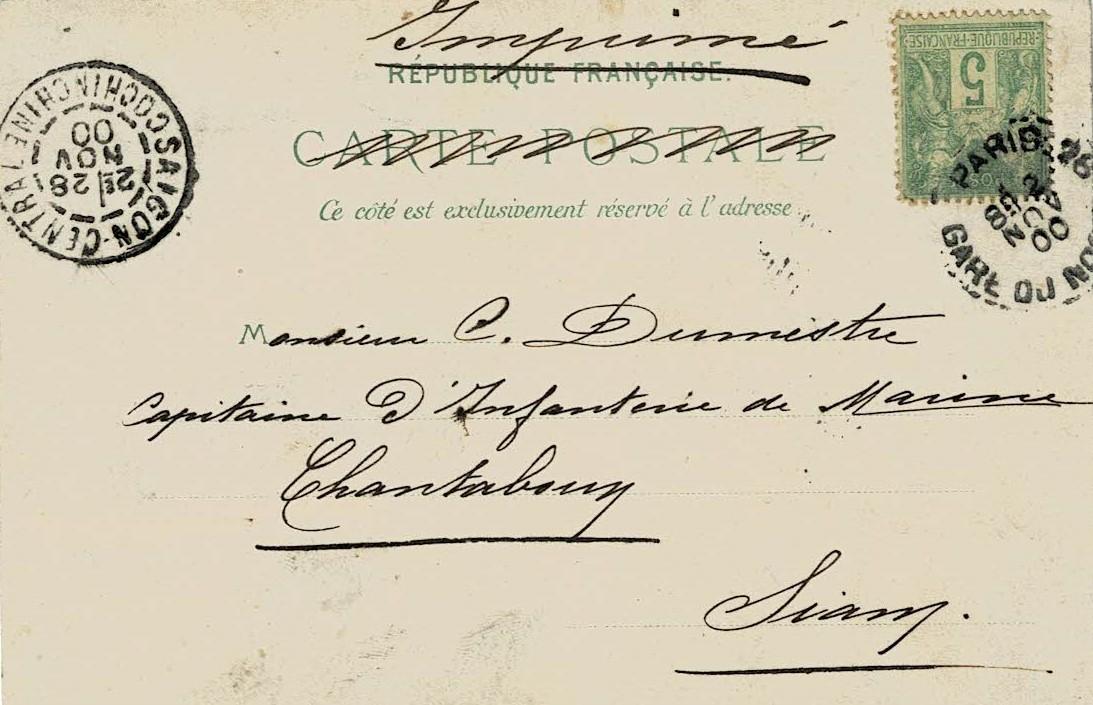 Imprimé
RÉPUBLIQUE FRANÇAISE.
CARTE POSTALE
Ce côté est exclusivement réservé à l'adresse
Monsieur C. Dumestre
Capitaine d'Infanterie de Marine
Chantabouy
Siam.
SAIGON-CENTRAL COCHINCHINE
2E
28
NOV
00
REPUBLIQUE-FRANÇAISE
5
PARIS
GARE DU NORD
28
OCT
00